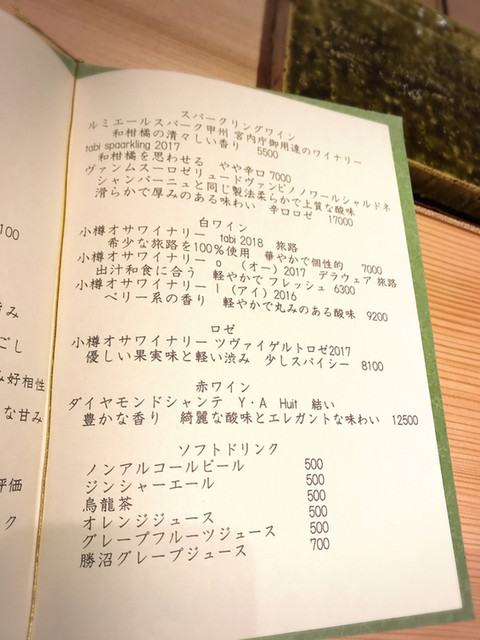 スパークリングワイン
ルミエールスパーク甲州 宮内庁御用達のワイナリー
和柑橘の清々しい香り 5500
tabi spaarkling 2017
和柑橘を思わせる やや辛口 7000
ヴァンムスーロゼリュードヴァンピノノワールシャルドネ
シャンパーニュと同じ製法柔らかで上質な酸味
滑らかで厚みのある味わい 辛口ロゼ 17000
白ワイン
小樽オサワイナリー tabi 2018 旅路
希少な旅路を100%使用 華やかで個性的 7000
小樽オサワイナリー o (オー) 2017 デラウェア 旅路
出汁和食に合う 軽やかで フレッシュ 6300
小樽オサワイナリー I (アイ) 2016
ベリー系の香り 軽やかで丸みのある酸味 9200
ロゼ
小樽オサワイナリー ツヴァイゲルトロゼ2017
優しい果実味と軽い渋み 少しスパイシー 8100
赤ワイン
ダイヤモンドシャンテ Y・A Huit 結い
豊かな香り 綺麗な酸味とエレガントな味わい 12500
ソフトドリンク
ノンアルコールビール 500
ジンシャーエール 500
烏龍茶 500
オレンジジュース 500
グレープフルーツジュース 500
勝沼グレープジュース 700
100
み
ごし
み好相性
な甘み
評価
ク